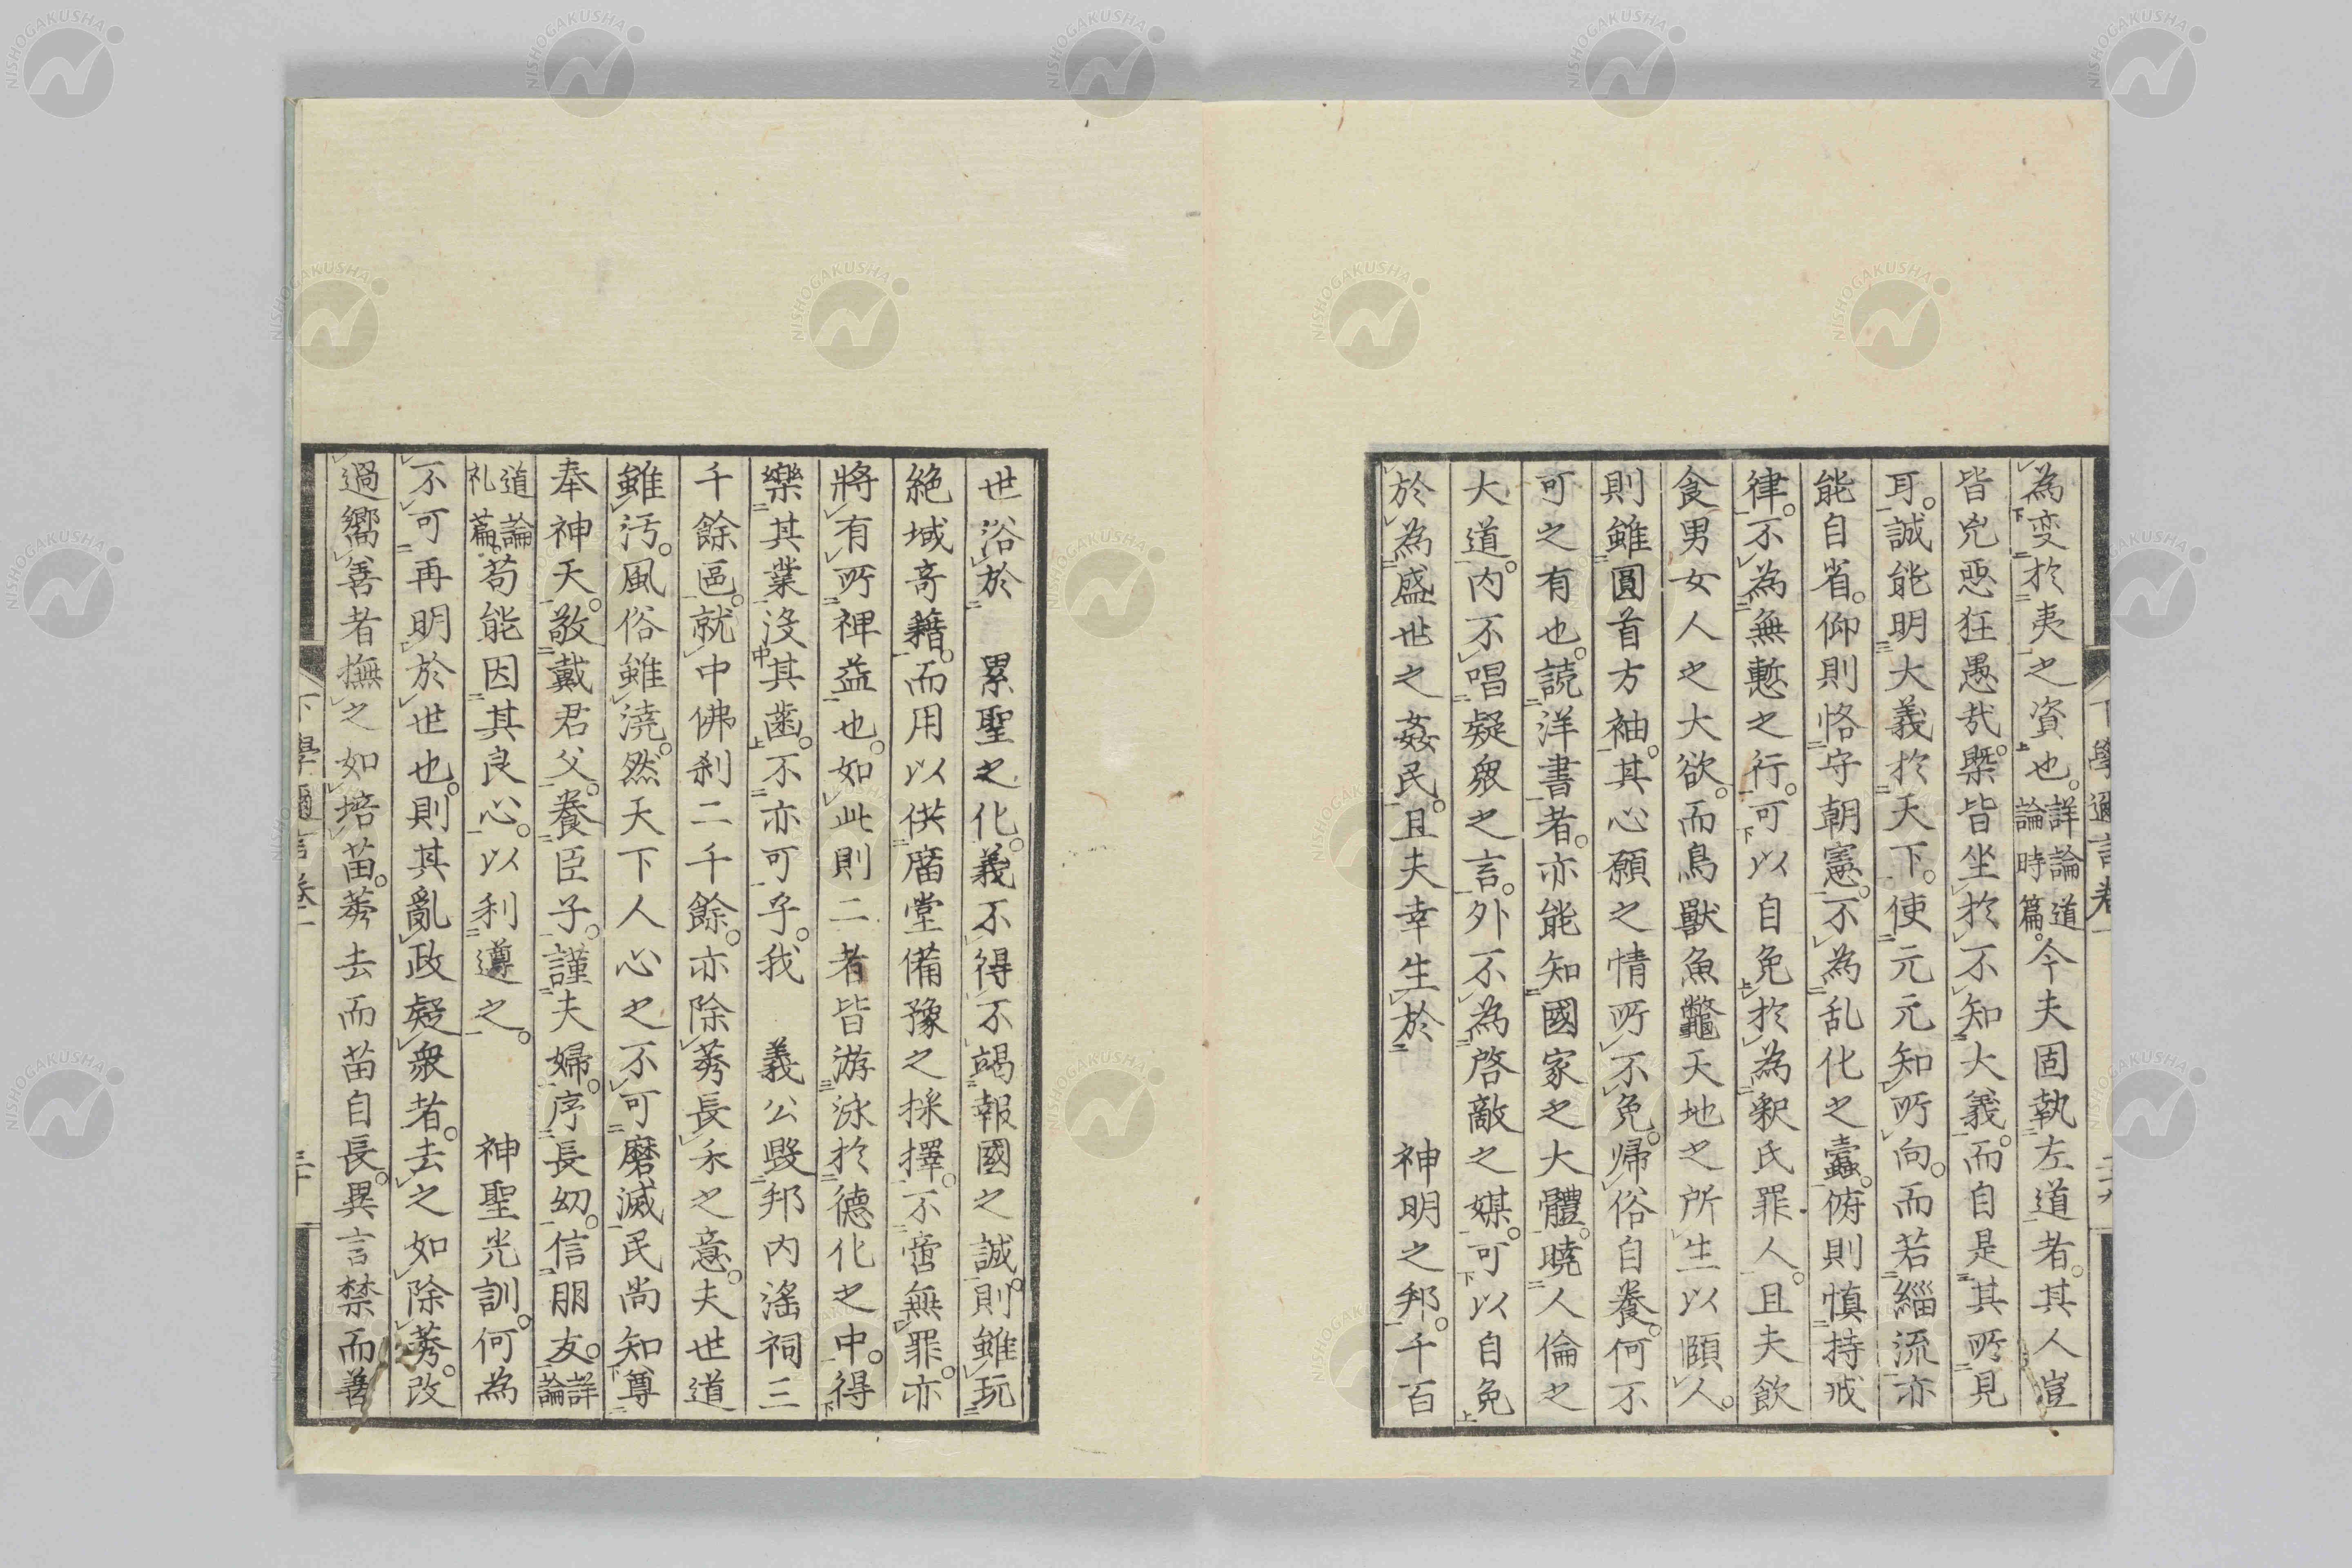 為変於夷之資也。詳論道論時篇。今夫固執左道者。其人豈
皆兇悪狂愚哉。槩皆坐於不知大義。而自是其所見
耳。誠能明大義於天下。使元元知所向。而若緇流亦
能自省。仰則恪守朝憲。不為乱化之蠹。俯則慎持戒
律。不為無慙之行。可以自免於為釈氏罪人。且夫飲
食男女人之大欲。而鳥獣魚鼈天地之所生以頤人。
則雖圓首方袖。其心願之情所不免。帰俗自養。何不
可之有也。読洋書者。亦能知國家之大體。曉人倫之
大道。内不唱疑衆之言。外不為啓敵之媒。可以自免
於為盛世之姦民。且夫幸生於 神明之邦。千百
世浴於 累聖之化。義不得不竭報國之誠。則雖玩
絶域奇籍。而用以供廟堂備豫之採擇。不啻無罪。亦
將有所裨益也。如此則二者皆游泳於德化之中。得
樂其業沒其齒。不亦可乎。我 義公毀邦内滛祠三
千餘區。就中佛刹二千餘。亦除莠長禾之意。夫世道
雖汚。風俗雖澆。然天下人心之不可磨滅。民尚知尊
奉神天。敬戴君父。養臣子。謹夫婦。序長幼。信朋友。詳論
道論礼篇。苟能因其良心。以利導之。 神聖光訓。何為
不可再明於世也。則其亂政疑衆者。去之如除莠。改
過嚮善者撫之如培苗。莠去而苗自長。異言禁而善
下學邇言卷一